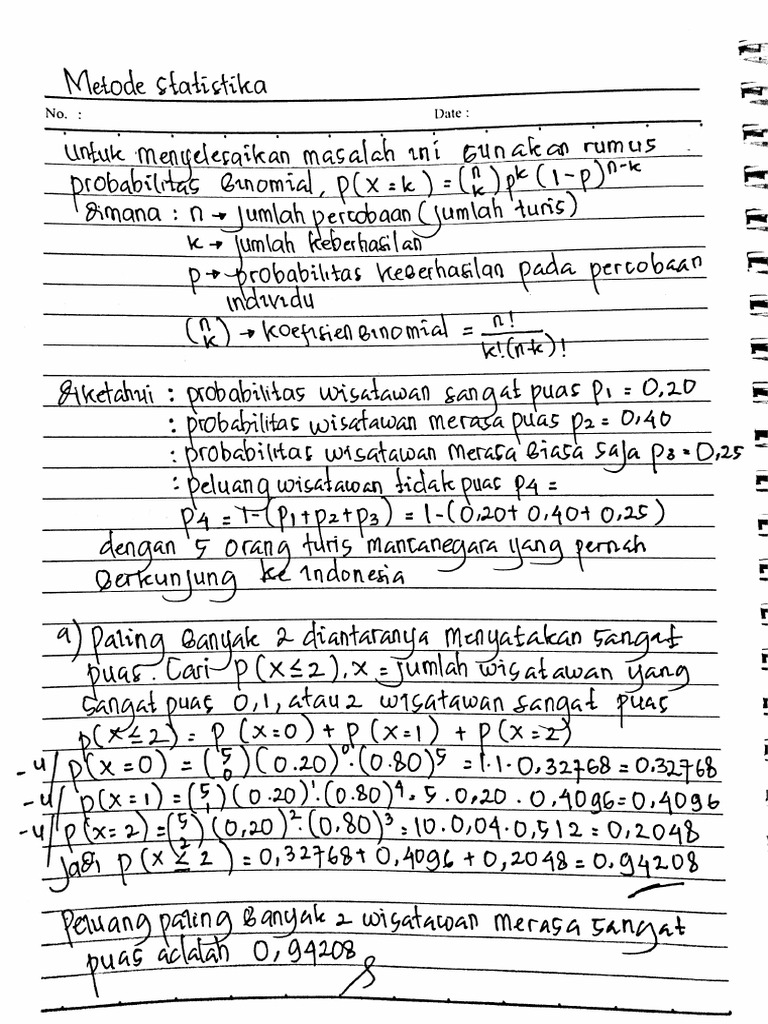 Metode statistika
No. : Date :
untuk menyelesaikan masalah ini gunakan rumus
probabilitas Binomial, p(x=k) = (n k) p^k (1-p)^n-k
dimana : n → jumlah percobaan (jumlah turis)
k → jumlah keberhasilan
p → probabilitas keberhasilan pada percobaan
individu
(n k) → koefisien Binomial = n! / k!(n-k)!
diketahui : probabilitas wisatawan sangat puas p1 = 0,20
: probabilitas wisatawan merasa puas p2 = 0,40
: probabilitas wisatawan merasa Biasa saja p3 = 0,25
: peluang wisatawan tidak puas p4 =
p4 = 1-(p1+p2+p3) = 1-(0,20+ 0,40+ 0,25)
dengan 5 orang turis mancanegara yang pernah
Berkunjung ke indonesia
a) paling Banyak 2 diantaranya menyatakan sangat
puas. Cari p(x≤2), x = jumlah wisatawan yang
sangat puas 0,1, atau 2 wisatawan sangat puas
p(x≤2) = p(x=0) + p(x=1) + p(x=2)
-u/ p(x=0) = (5 0)(0.20)^0.(0.80)^5 = 1.1.0,32768 = 0.32768
-u/ p(x=1) = (5 1)(0.20)^1.(0.80)^4. 5.0,20.0,4096=0,4096
-u/ p(x=2) = (5 2)(0,20)^2.(0,80)^3 = 10.0,04.0,512 = 0,2048
Jadi p(x≤2) = 0,32768+ 0,4096 + 0,2048 = 0.94208
Peluang paling Banyak 2 wisatawan merasa sangat
puas adalah 0,94208